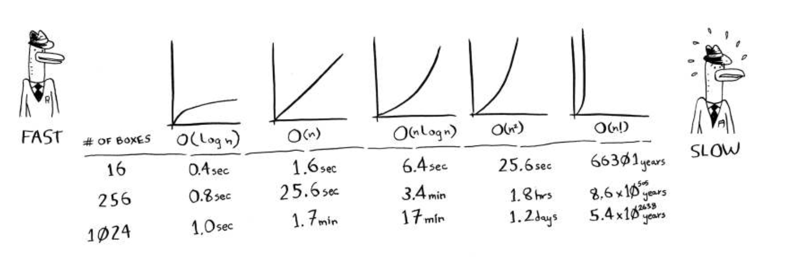 FAST
# OF BOXES O(log n) O(n) O(n log n) O(n²) O(n!)
SLOW
16 0.4sec 1.6sec 6.4sec 25.6sec 66301years
256 0.8sec 25.6sec 3.4min 1.8hrs 8.6x10⁵⁰⁵years
1024 1.0sec 1.7min 17min 1.2days 5.4x10²⁶³⁸years